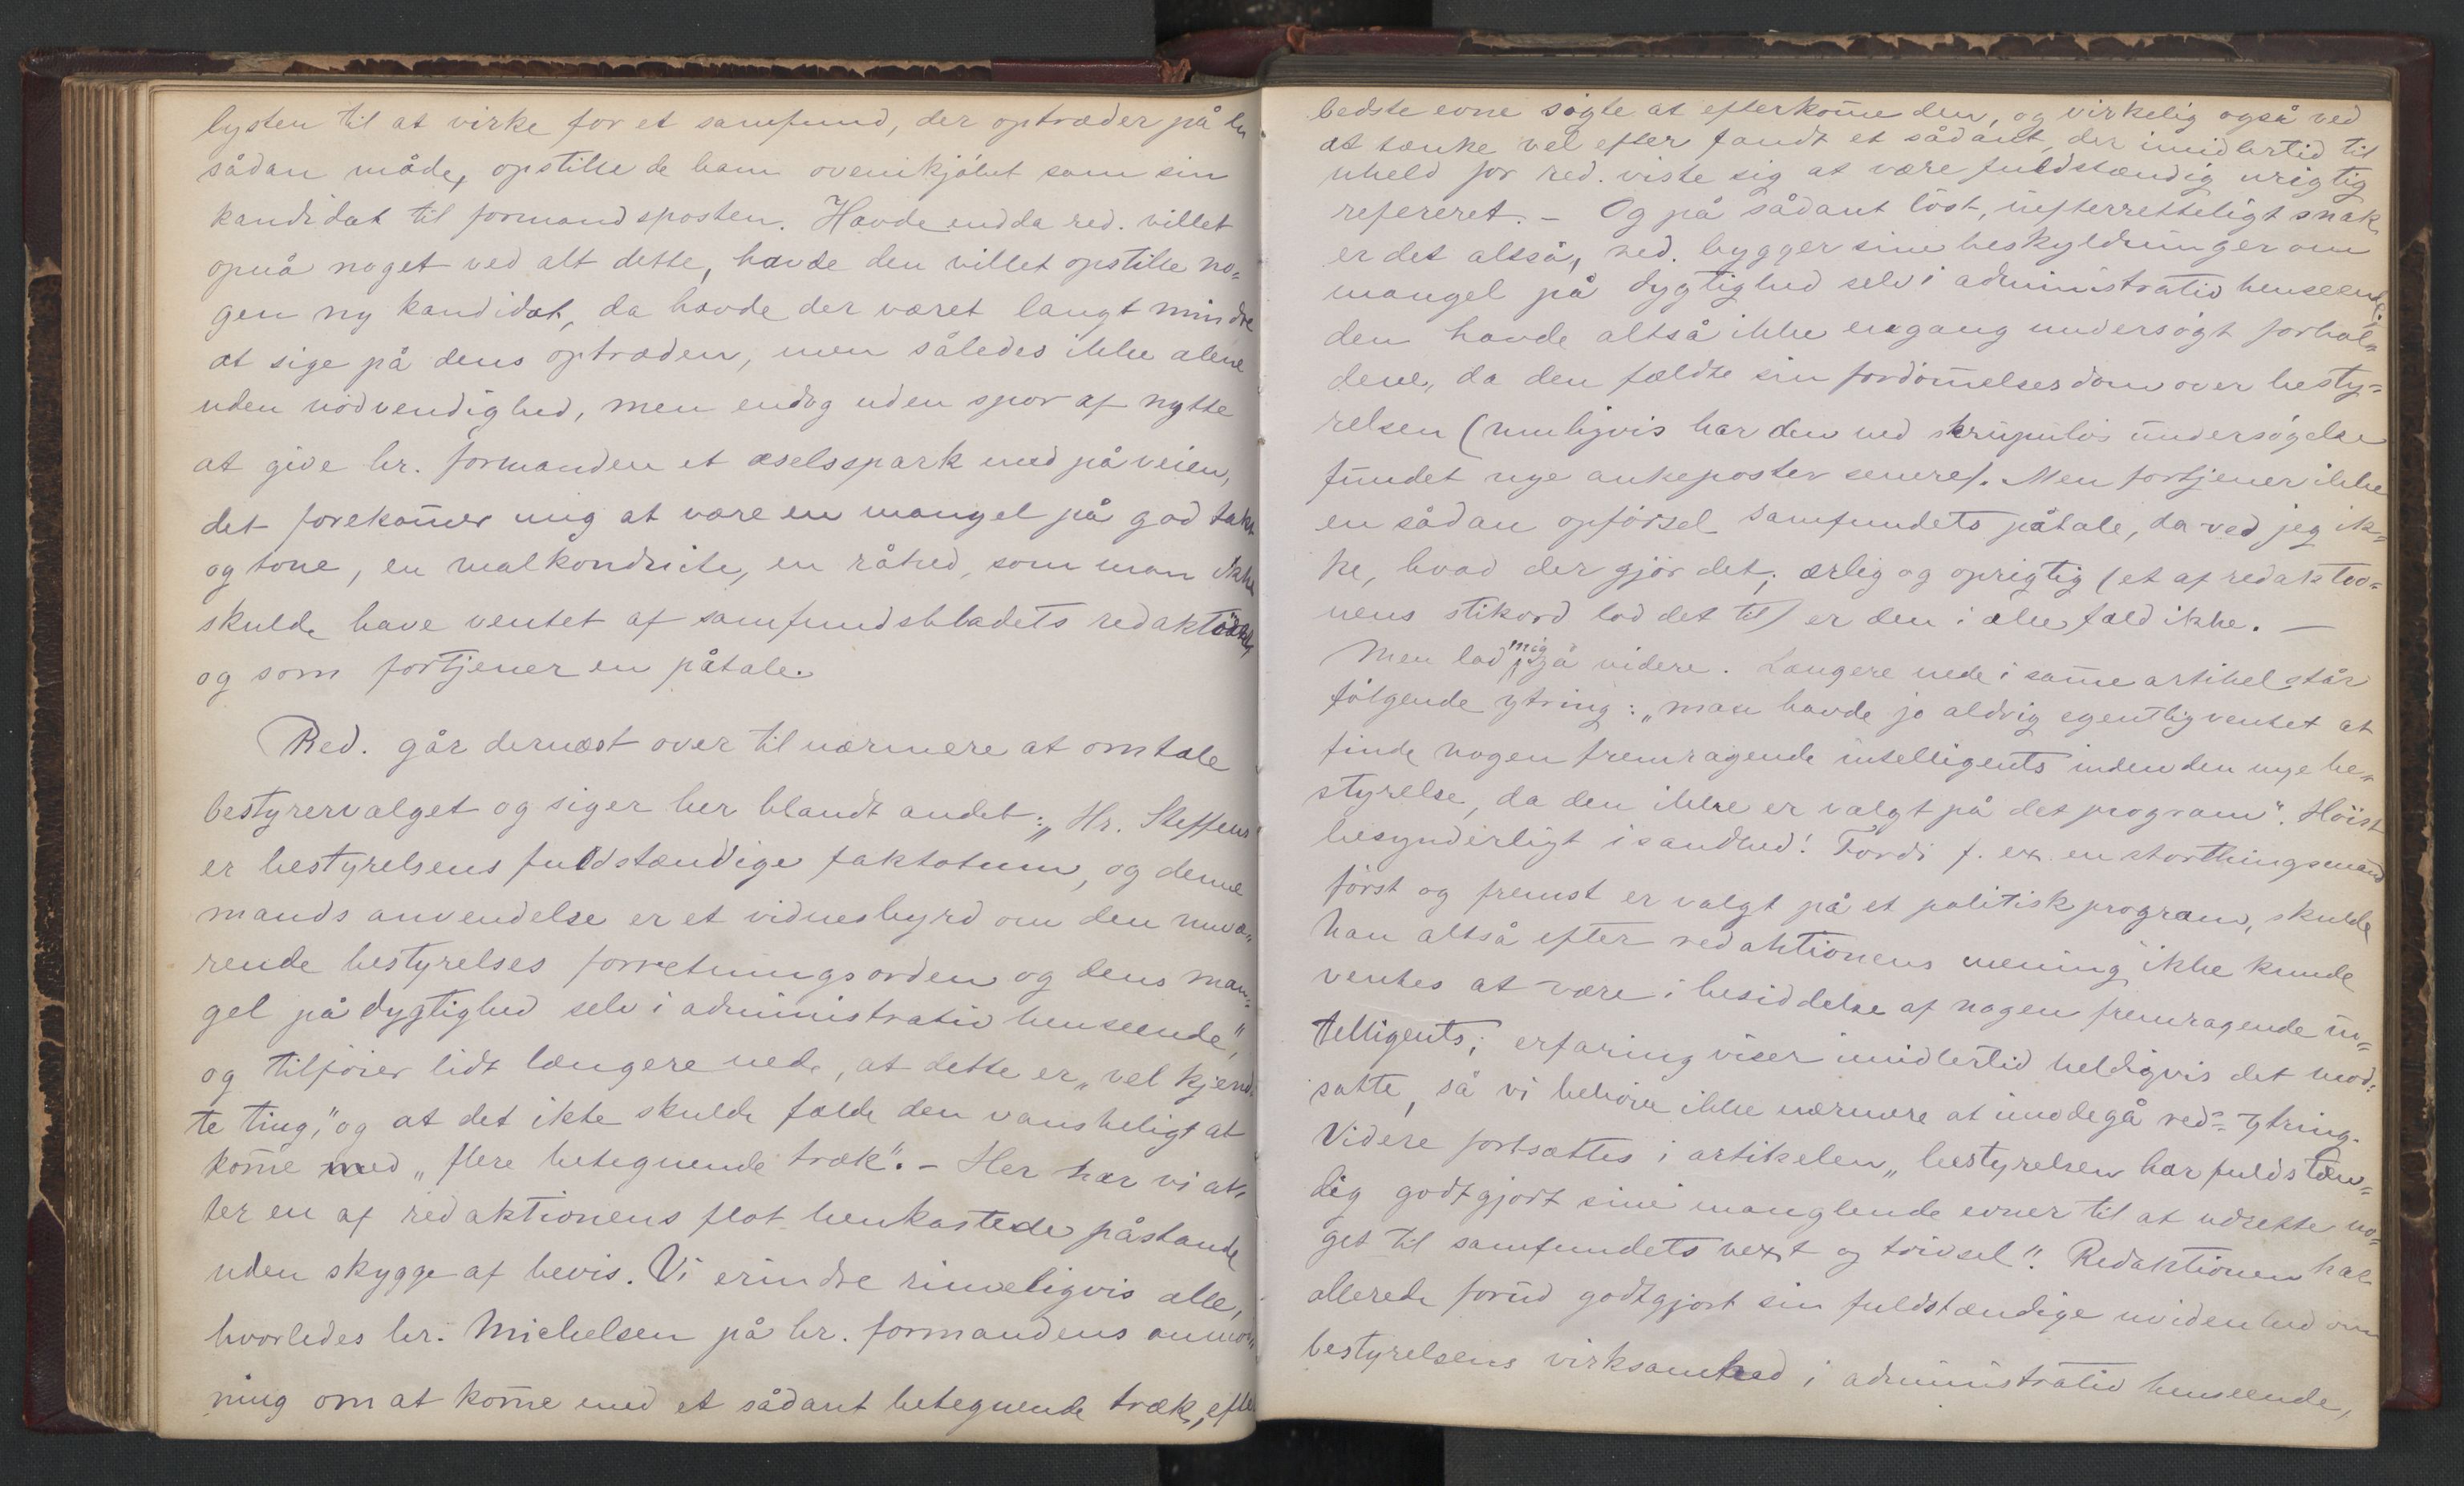 lysten til at virke for et samfund, der optræder på en
sådan måde, opstille de ham ovenikjøbet som sin
kandidat til formandsposten. Havde endda red. villet
opnå noget ved alt dette, havde den villet opstille no=
gen ny kandidat, da havde der været langt mindre
at sige på dens optræden, men således ikke alene
uden nødvendighed, men endog uden spor af nytte
at give hr. formanden et æselsspark med på veien,
det forekom̄er mig at være en mangel på god takt
og tone, en malkonduite, en råhed, som man ikke
skulde have ventet af samfundsbladets redaktører,
og som fortjener en påtale.
Red. går dernæst over til nærmere at omtale
bestyrervalget og siger her blandt andet: „Hr. Steffens
er bestyrelsens fuldstændige faktotum, og denne
mands anvendelse er et vidnesbyrd om den nuvæ=
rende bestyrelses forretningsorden og dens man=
gel på dygtighed selv i administrativ henseende",
og tilføier lidt længere nede, at dette er „vel kjend=
te ting," og at det ikke skulde falde den vanskeligt at
kom̄e med „flere betegnende træk". – Her har vi at=
ter en af redaktionens flot henkastede påstande
uden skygge af bevis. Vi erindre rimeligvis alle,
hvorledes hr. Michelsen på hr. formandens anmod=
ning om at kom̄e med et sådant betegnende træk, efter
bedste evne søgte at efterkom̄e den, og virkelig også ved
at tænke vel efter fandt et sådant, der imidlertid til
uheld for red. viste sig at være fuldstændig urigtig
refereret. – Og på sådant løst, uefterretteligt snak
er det altså, red. bygger sine beskyldninger om
mangel på dygtighed selv i administrativ henseende;
den havde altså ikke engang undersøgt forhol=
dene, da den fældte sin fordøm̄elsesdom over besty=
relsen (muligvis har den ved skrupuløs undersøgelse
fundet nye ankeposter senere). Men fortjener ikke
en sådan opførsel samfundets påtale, da ved jeg ik=
ke, hvad der gjør det; ærlig og oprigtig (et af redaktio=
nens stikord lod det til) er den i alle fald ikke. –
Men lad mig gå videre. Længere nede i sam̄e artikel står
følgende ytring: „man havde jo aldrig egentlig ventet at
finde nogen fremragende intelligents inden den nye be=
styrelse, da den ikke er valgt på det program". Høist
besynderligt i sandhed! Fordi f. ex. en storthingsmand
først og fremst er valgt på et politisk program, skulde
han altså efter redaktionens mening ikke kunde
ventes at være i besiddelse af nogen fremragende in=
telligents; erfaring viser imidlertid heldigvis det mod=
satte, så vi behøve ikke nærmere at imødegå reds ytring.
Videre fortsættes i artikelen „bestyrelsen har fuldstæn=
dig godtgjort sine manglende evner til at udrette no=
get til samfundets vext og trivsel". Redaktionen har
allerede forud godtgjort sin fuldstændige uvidenhed om
bestyrelsens virksomhed i administrativ henseende,